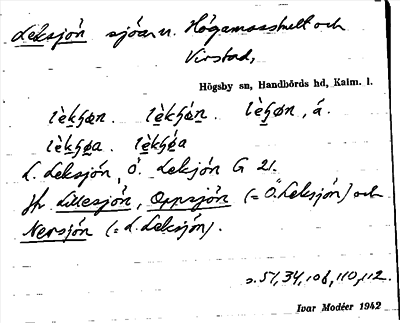 Leksjön sjöar n. Högamosshult och
Virstad,
Högsby sn, Handbörds hd, Kalm. l.
lèkʃøn. lèkʃón. lèʃøn, á.
lèkʃøa lèkʃóa
L. Leksjön, Ö. Leksjön G 21.
Jfr Lillesjön, Oppsjön (= Ö. Leksjön) och
Nersjön (= L. Leksjön).
s. 51, 34, 108, 110, 112.
Ivar Modéer 1942